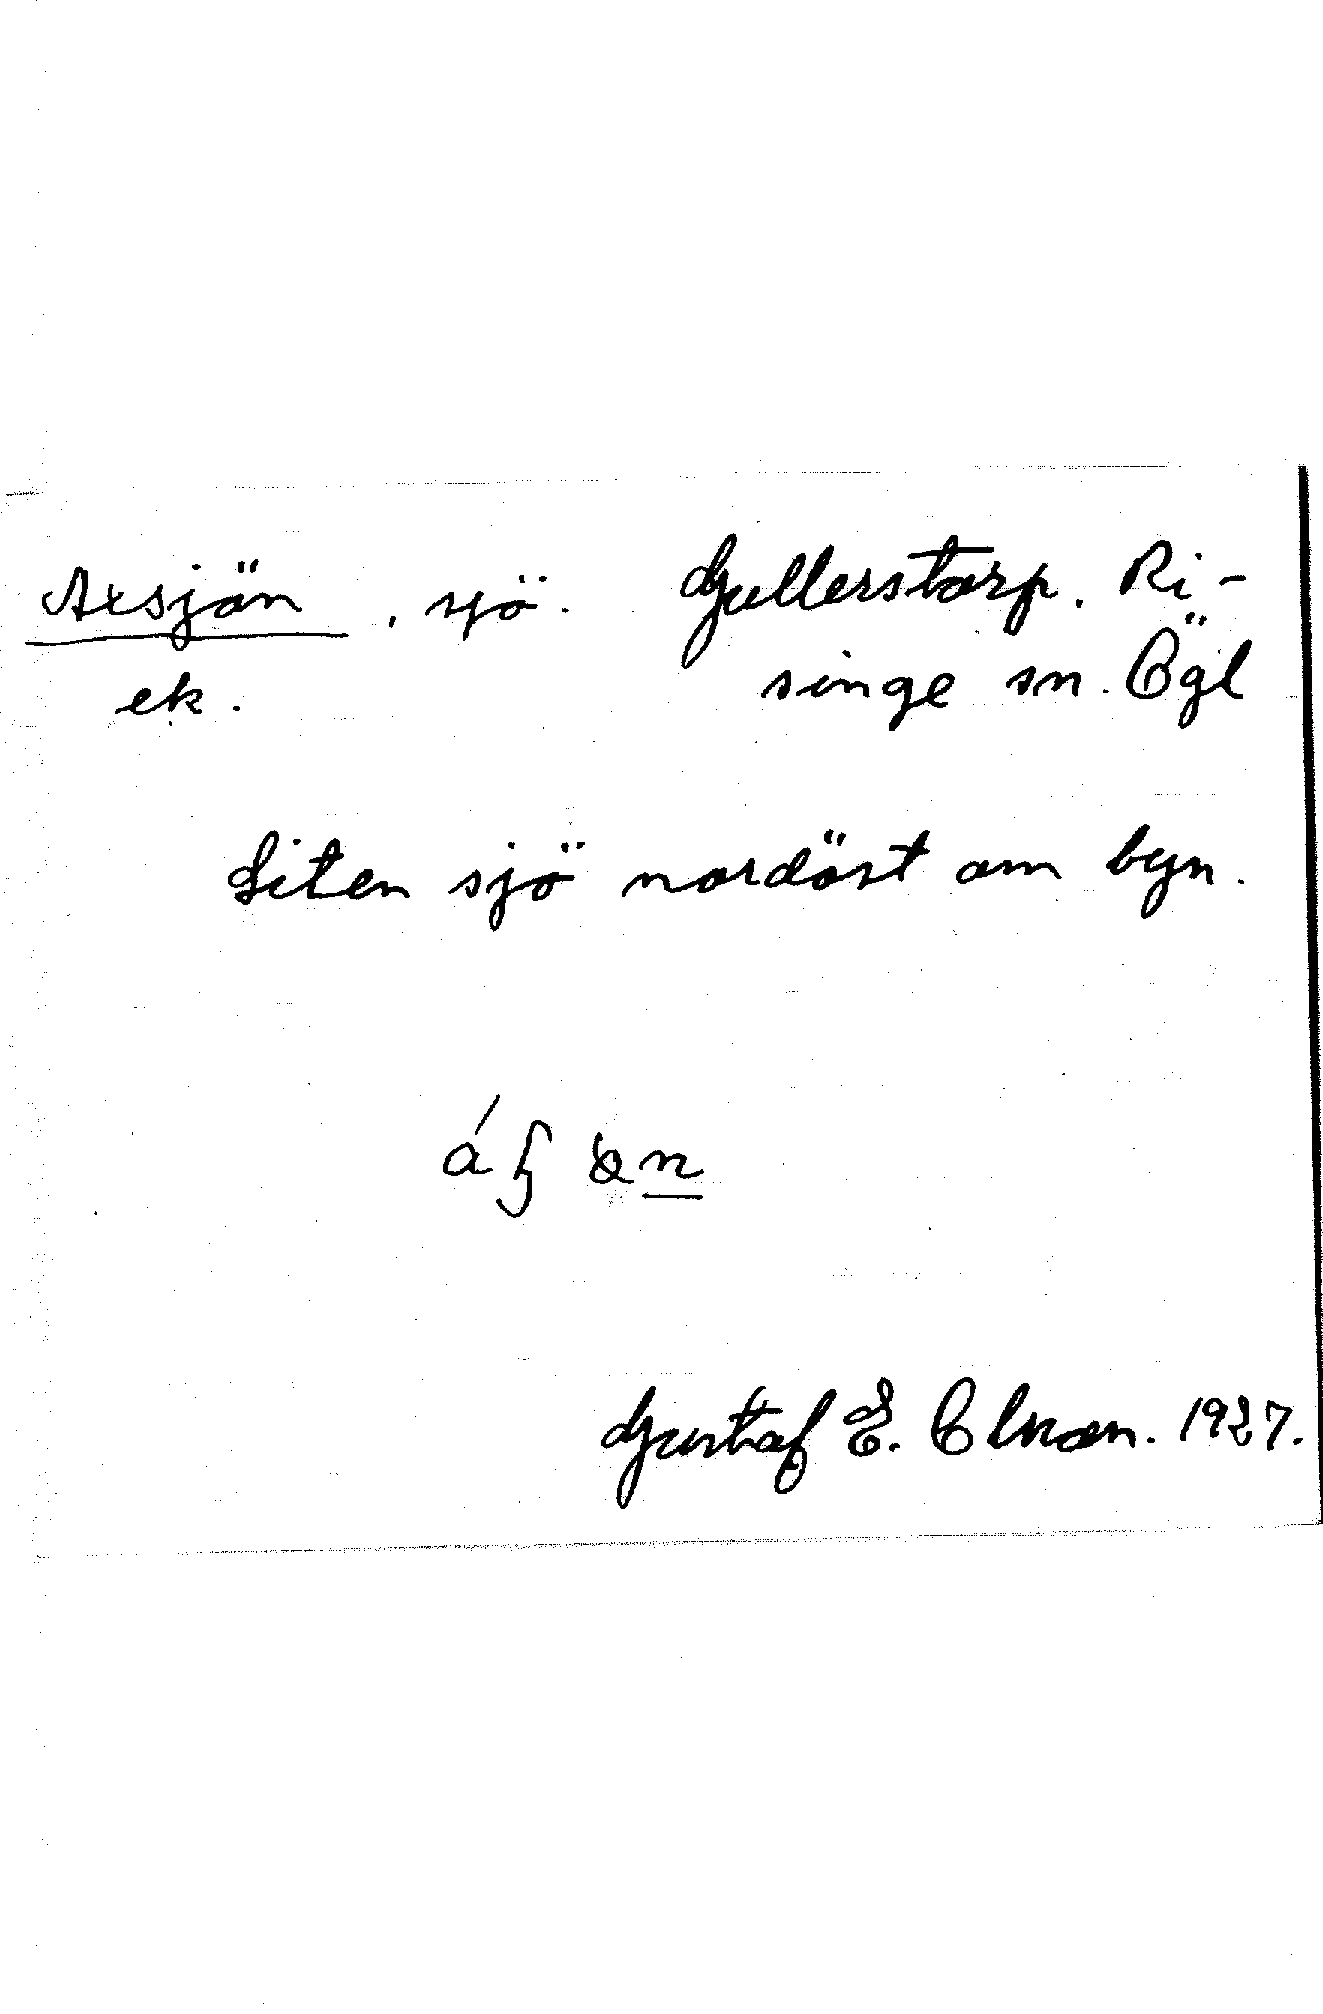 Axsjön, sjö. Gullerstorp. Ri-
ek. singe sn. Ögl
Liten sjö nordöst om byn.
Gustaf E. 1927.